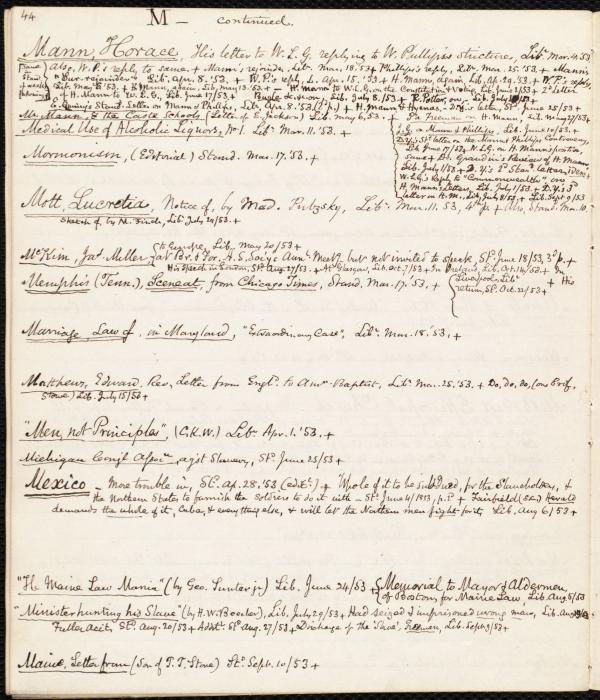 44
M — continued.
Mann, Horace, His letter to W.L.G. replying to W. Phillips's strictures, Lib. Mar. 4.'53
also, W.P.'s reply to same. + Mann's rejoinder, Lib. Mar. 18.'53 + Phillips's reply, Lib. Mar. 25.'53. + Mann's
"Sur-rejoinder" Lib. Apr. 8.'53. + W.P.'s reply, L. Apr. 15.'53 + H. Mann, again, Lib. Ap. 29.'53. + W.P.'s reply,
Lib. May 6.'53. + H. Mann, again, Lib. May 13.'53 + — H. Mann to W.L.G. on the Constitution & Voting Lib. June 3/53 + 2d Letter
of H. Mann to W.L.G. Lib. June 17/53 + Lib. July 8/53 + R. Potter, on, Lib. July
Stand. Letter on Mann & Phillips, Lib. June 25/53 +
Mr. Mann, & the Caste Schools, (Letter of E. Jackson) Lib. May 6.'53. +
Pa. Freeman on H. Mann, Lib. May 27/53 +
Medical Use of Alcoholic Liquors, No 1. Lib. Mar. 11.'53. +
on Mann & Phillips, Lib. June 10/53. +
D.Y.'s St. letter on the Mann & Phillips Controversy,
Lib. June 17/53.
Mormonism, (Editorial) Stand. Mar. 17.'53. +
same + Dr. Grandin's Review of H. Mann
Lib. July 1/53 + D.Y.'s 2d Stan. Letter,
W.L.G.'s reply to "Commonwealth", on
H. Mann's Letter, Lib. July 1/53. + D.Y.'s 3d
letter on H.M., Lib. July 8/53 + Lib. Sept. 9/53
Mott, Lucretia, Notice of, by Mad. Pulzsky, Lib. Mar. 11, 53, 4th p. + (Also, Stand. Mar. 10.
Sketch of, by N. Finch, Lib. July 29/53. +
McKim, Jas. Miller to Europe, Lib. May 20/53 +
at Br. & For. A.S. Soc.'s Ann. Meetg, but not invited to speak, St. June 18/53, 3d p. +
His speech in London, St. Aug. 27/53. + At Glasgow, Lib. Oct. 7/53 + In Ireland, Lib. Oct. 14/52. + In
Liverpool, Lib. + His
return, St. Oct. 22/53 +
Memphis (Tenn.), Scene at, from Chicago Times, Stand. Mar. 17.'53, +
Marriage, Law of, in Maryland, "Extraordinary Case", Lib. Mar. 18.'53. +
Matthews, Edward, Rev. Letter from Engl. to Amn. Baptist, Lib. Mar. 25.'53. + Do, do, do, (on Prof.
Stowe) Lib. July 15/53 +
"Men, not Principles", (C.K.W.) Lib. Apr. 1.'53. +
Michigan Congl. Assocn. agst Slavery, St. June 25/53 +
Mexico — More trouble in, St. Ap. 28.'53 (edit.) + "Whole of it to be subdued, for the Slaveholders, &
the Northern States to furnish the soldiers to do it with — St. June 4/1853, p. 2 + Fairfield (S.C.) Herald
demands the whole of it, Cuba, & everything else, & will let the Northern men fight for it, Lib. Aug 5/53 +
"The Maine Law Mania" (by Geo. Sunter jr.) Lib. June 24/53 + Memorial to Mayor & Aldermen
of Boston, for Maine Law Lib. Aug. 5/53
"Minister hunting his Slave" (by H.W. Beecher), Lib. July 29/53 + Had seized & imprisoned wrong man, Lib. Aug.
Fuller acct, St. Aug. 20/53 + Addit. St. Aug. 27/53. + Discharge of the 'Slave', Freeman, Lib. Sept. 9/53 +
Maine, Letter from (Son of T.T. Stone) St. Sept. 10/53 +